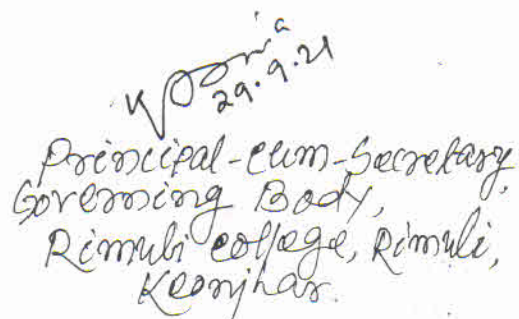 29.9.21
Principal-cum-Secretary,
Governing Body,
Rimuli college, Rimuli,
Keonjhar.